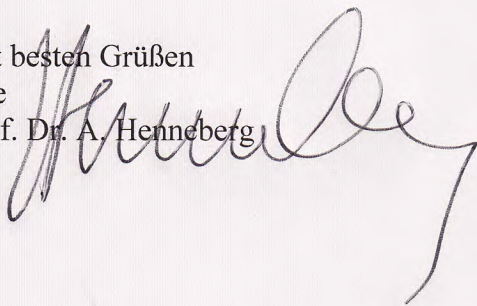 t besten Grüßen
e
f. Dr. A. Henneberg